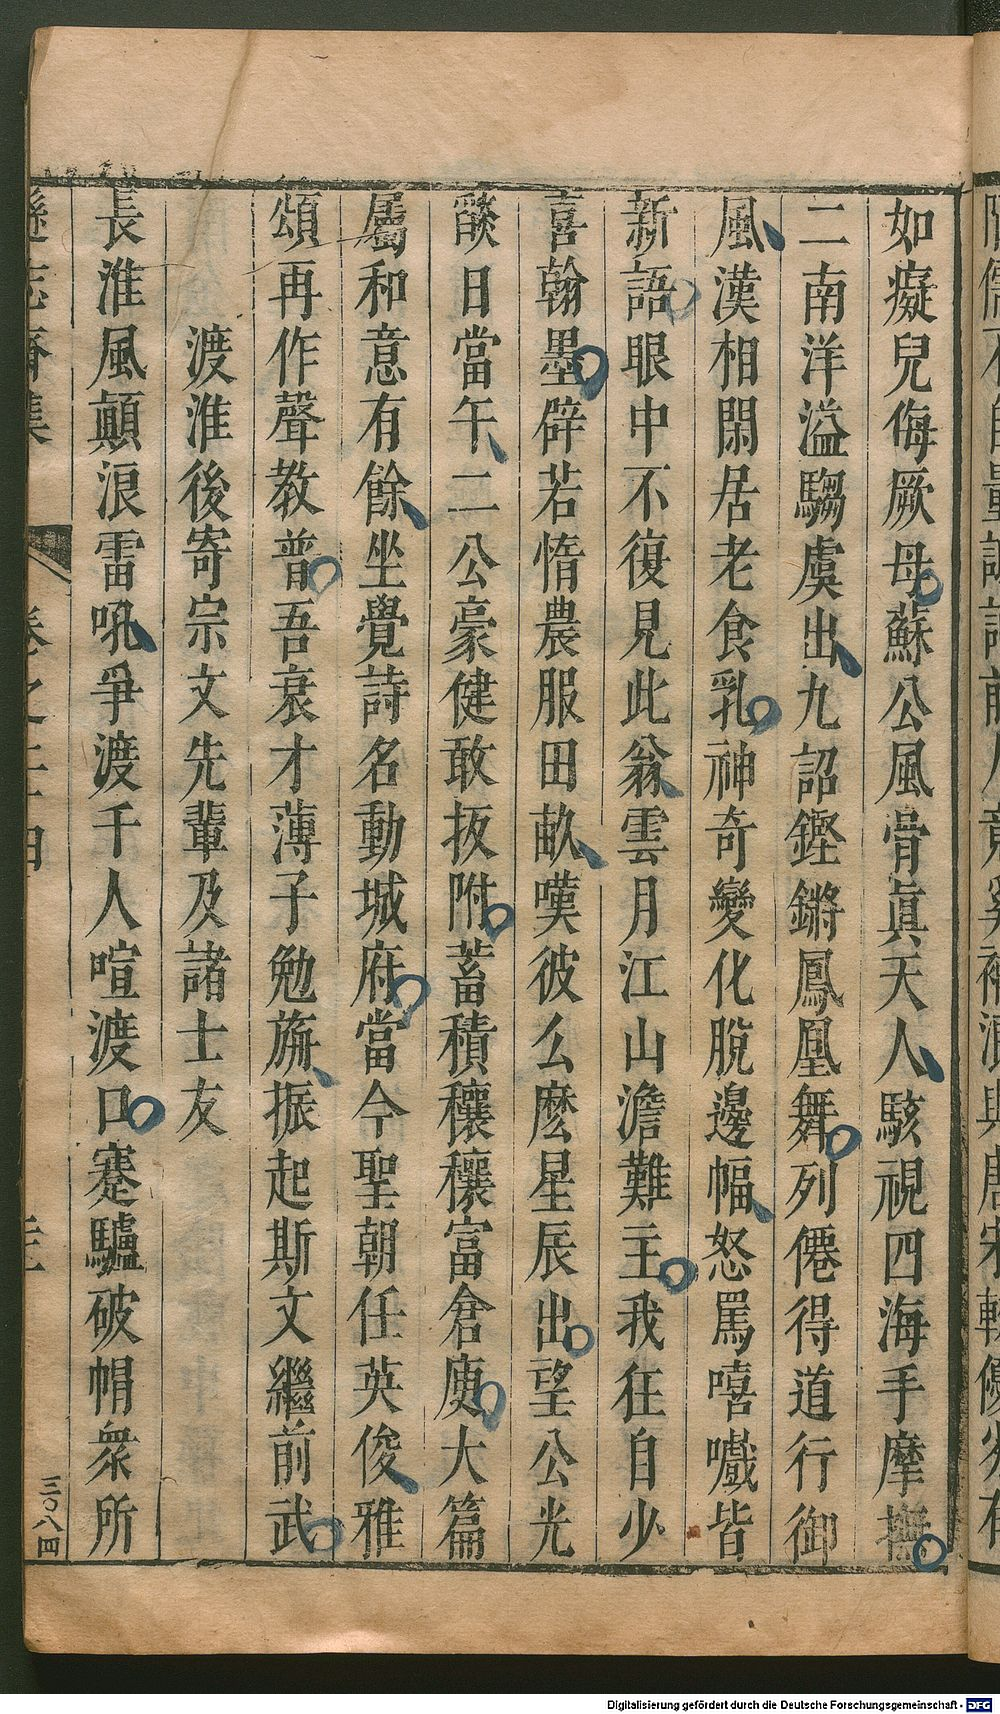 如癡兒侮厥母蘇公風骨眞天人駭視四海手摩撫
二南洋溢騶虞出九詔鏗鏘鳳凰舞列僊得道行御
風漢相閑居老食乳神奇變化脫邊幅怒罵嘻嚱皆
新語眼中不復見此翁雲月江山澹難主我徃自少
喜翰墨辟若惰農服田畝嘆彼么麽星辰出望公光
燄日當午二公豪健敢扳附蓄積穰穰富倉庾大篇
屬和意有餘坐覺詩名動城府當今聖朝任英俊雅
頌再作聲教普吾衰才薄子勉旃振起斯文繼前武
渡淮後寄宗文先輩及諸士友
長淮風顛浪雷吼爭渡千人喧渡口蹇驢破帽衆所
遜志齋集 卷之二十四
三〇八四
Digitalisierung gefördert durch die Deutsche Forschungsgemeinschaft - DFG